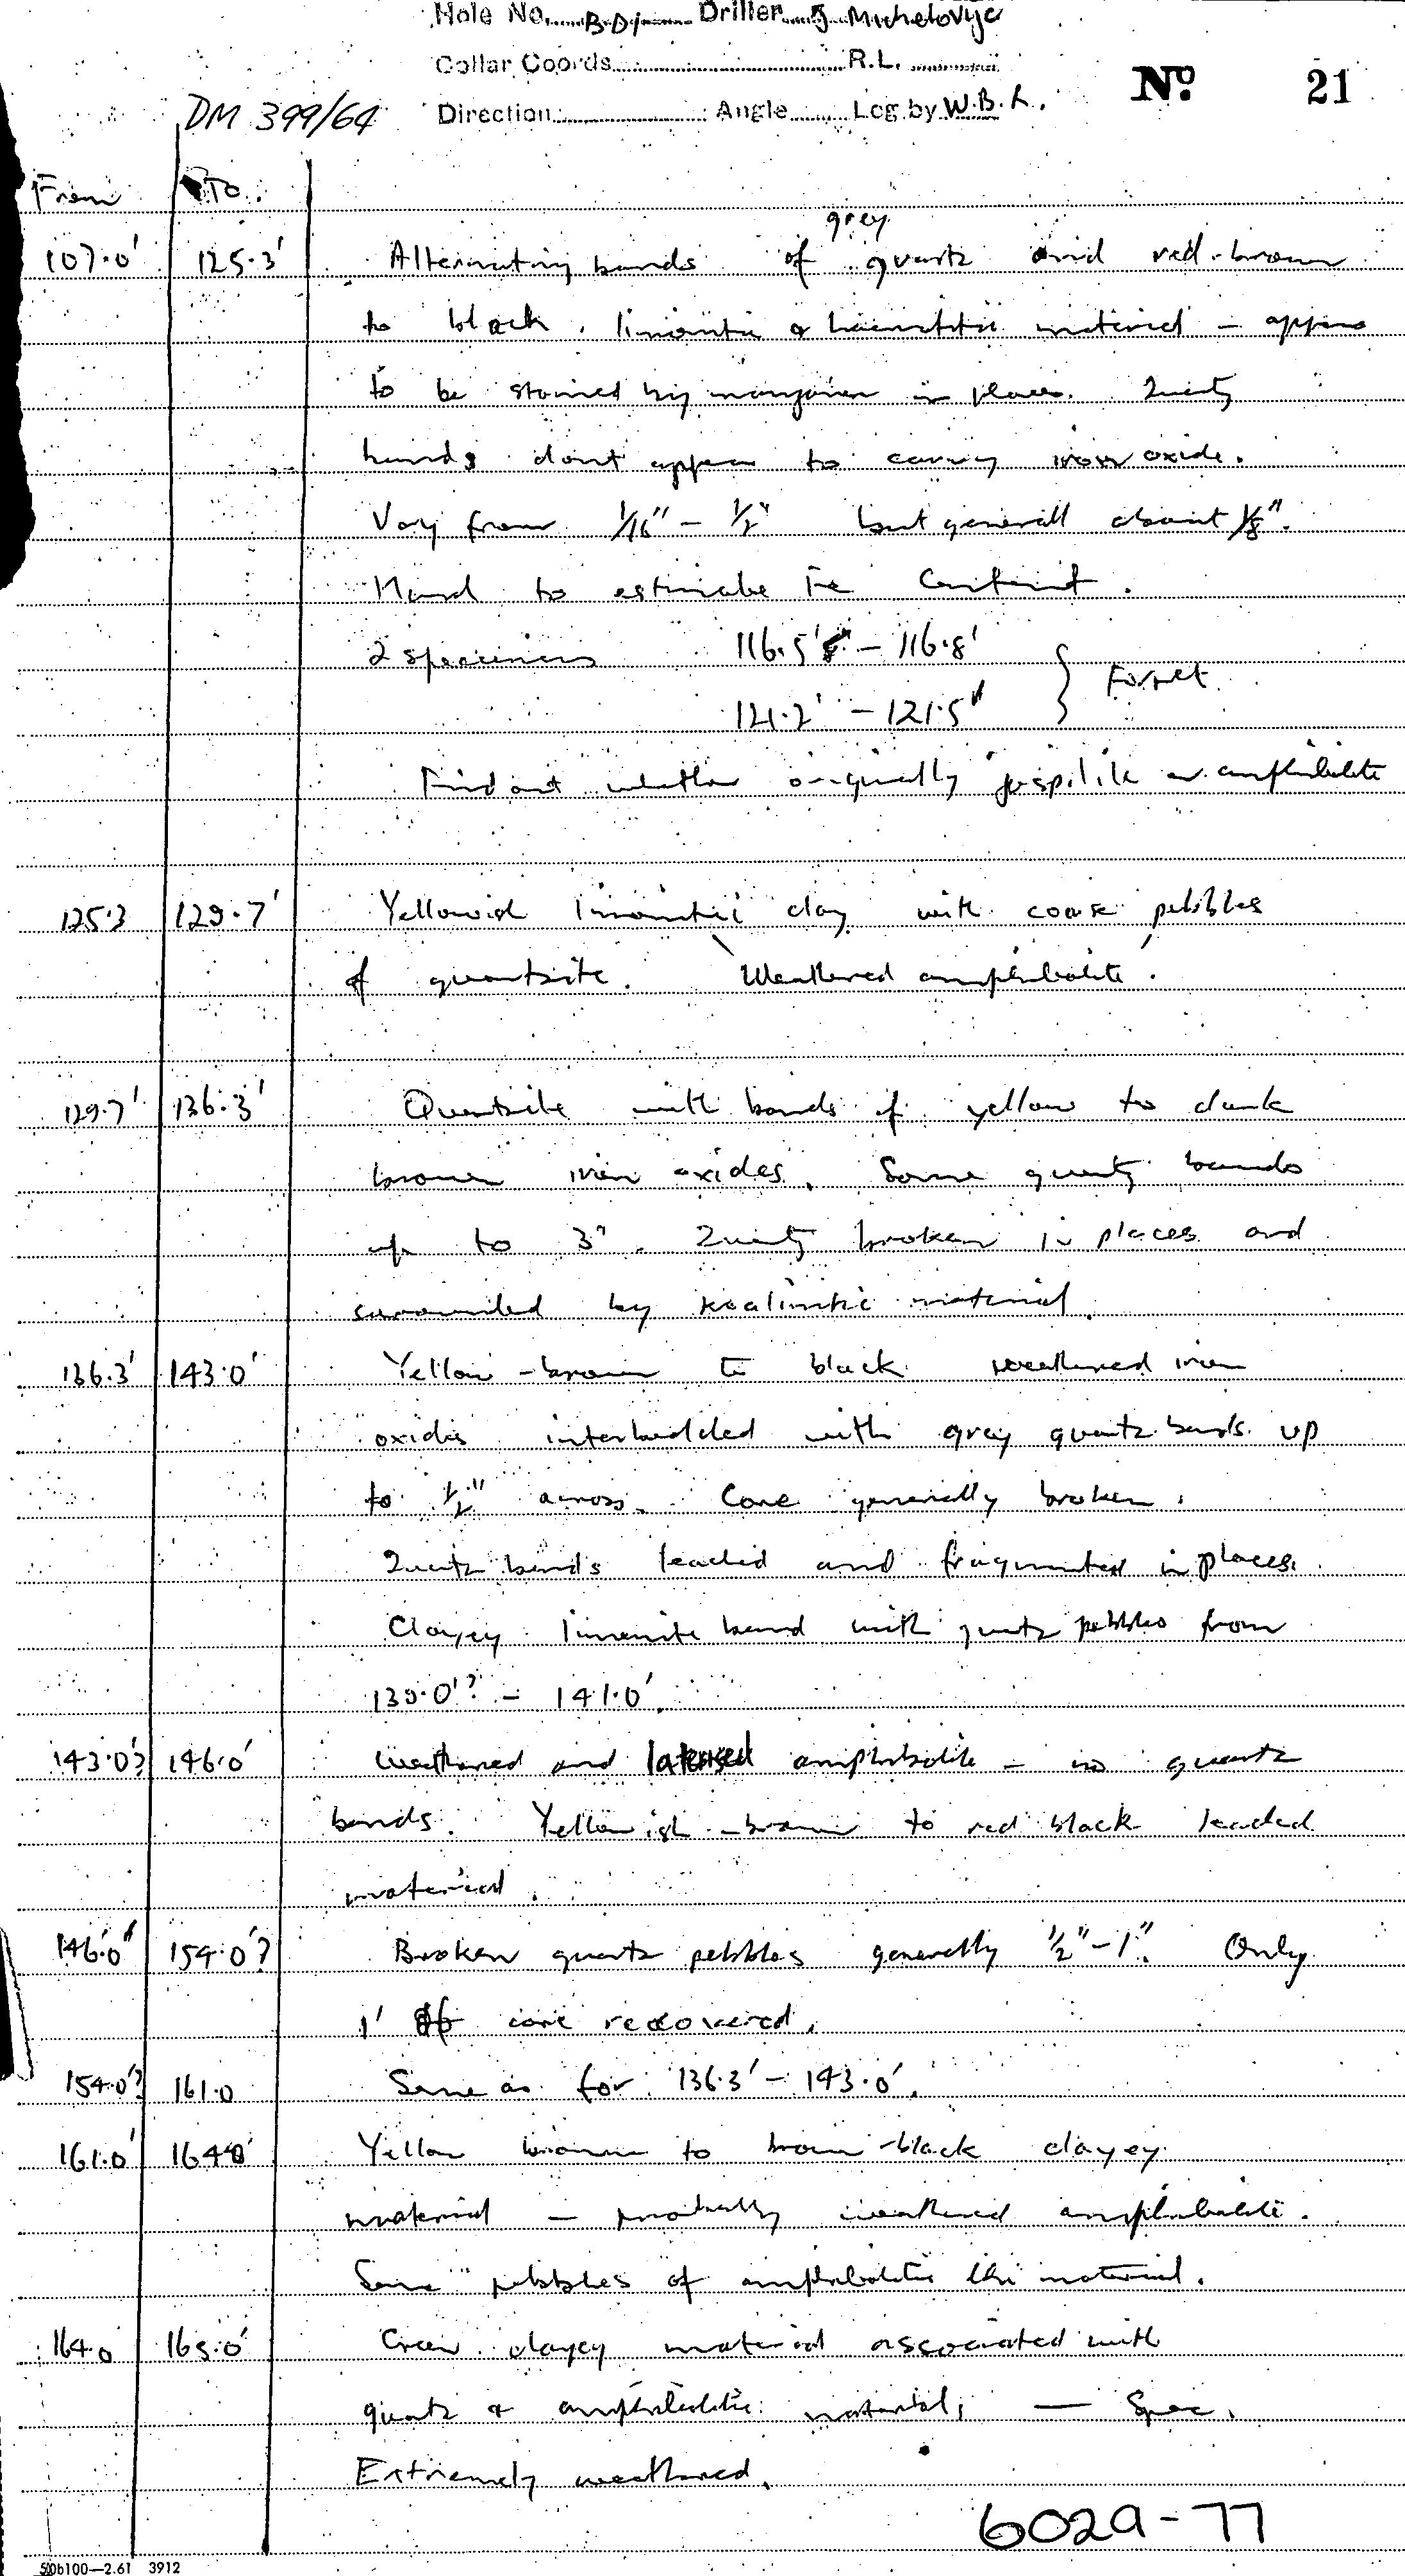 Hole No. BD1 Driller J Michelovyc
Collar Coords. R.L.
No. 21
DM 399/64 Direction Angle Log by W.B.R.
From To.
grey
107.0' 125.3' Alternating bands of quartz and red-brown
to black. limonitic & haematitic material - appears
to be stained by manganese in places. Quartz
bands dont appear to carry iron oxide.
Vary from 1/16" - 1/2" but generall about 1/8".
Hard to estimate Fe Content.
2 specimens 116.5' - 116.8'
121.2' - 121.5' } For pet.
Find out whether originally jaspilite or amphibolite
125.3 129.7' Yellowish limonitic clay with coarse pebbles
of quartzite. 'Weathered amphibolite'.
129.7' 136.3' Quartzite with bands of yellow to dark
brown iron oxides. Some quartz bands
up to 3". Quartz broken in places and
surrounded by koalinitic material.
136.3' 143.0' Yellow-brown to black weathered iron
oxides interbedded with grey quartz bands up
to 1/2" across. Core generally broken.
Quartz bands leached and fragmented in places.
Clayey limonite band with quartz pebbles from
139.0'? - 141.0'.
143.0? 146.0' Weathered and laterised amphibolite - no quartz
bands. Yellowish-brown to red black leached
material.
146.0' 154.0'? Broken quartz pebbles generally 1/2"-1". Only
1' of core recovered.
154.0'? 161.0 Same as for 136.3' - 143.0'.
161.0' 164.0' Yellow brown to brown-black clayey
material - probably weathered amphibolite.
Some pebbles of amphibolitic like material.
164.0 165.0' Green clayey material associated with
quartz & amphibolitic material, — Spec.
Extremely weathered.
6029-77
50b100—2.61 3912